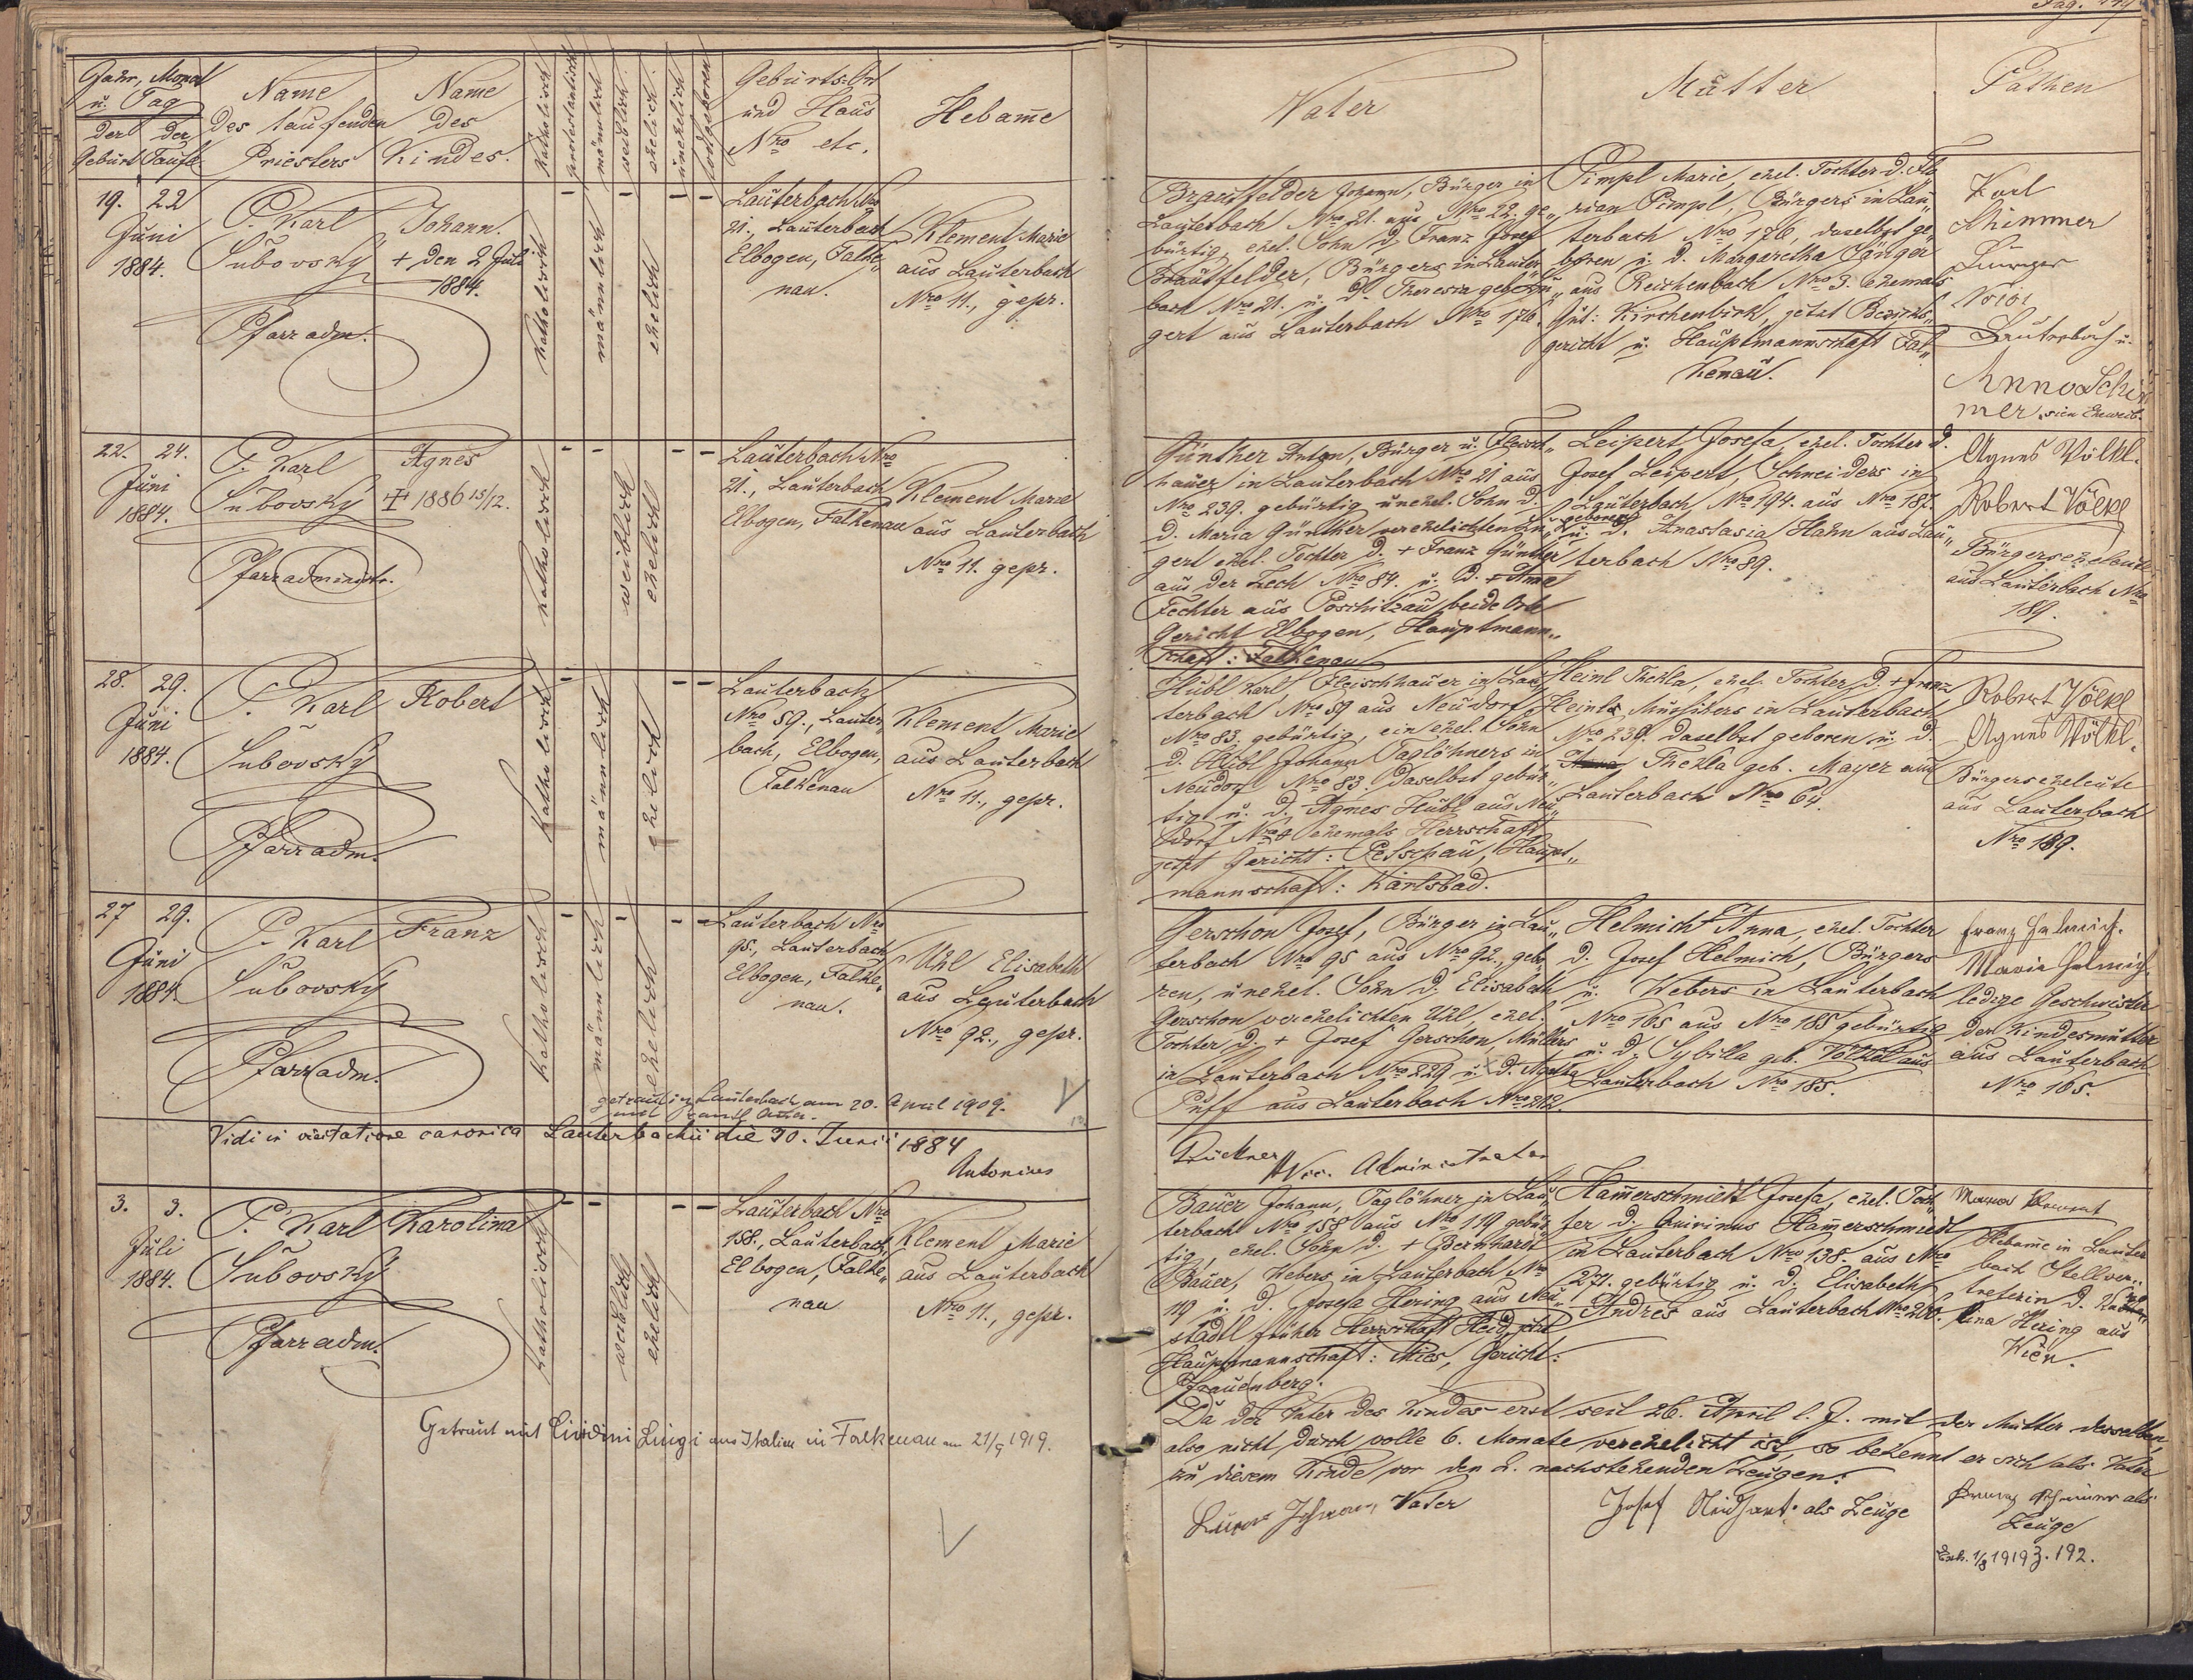 Pag.
Jahr, Monat
u. Tag
der der
Geburt Taufe
Name
des taufenden
Priesters
Name
des
Kindes.
katholisch
protestantisch
männlich
weiblich
ehelich
unehelich
todtgeboren
Geburts-Ort
und Haus
Nro etc.
Hebam̅e
Vater
Mutter
Pathen
19. 22
Juni
1884.
P. Karl
Subovsky
Pfarradm.
Johann.
+ den 2 Juli
1884.
katholisch
männlich
ehelich
Lauterbach Nro
21., Lauterbach
Elbogen, Falke„
nau.
Klement Marie
aus Lauterbach
Nro 11., gepr.
Brautfelder Johann, Bürger in
Lauterbach Nro 21. aus Nro 22. ge„
bürtig, ehel. Sohn d. Franz Josef
Brautfelder, Bürgers in Lauter„
bach Nro 21. u. d. Theresia geb.
gert aus Lauterbach Nro 176.
Pimpl Marie, ehel. Tochter d. Flo
rian Pimpl, Bürgers in Lau„
terbach Nro 176, daselbst ge„
boren u. d. Margaretha Sänger
aus Reichenbach Nro 3. ehemals
Gut: Kirchenbirk, jetzt Bezirks„
gericht u. Hauptmannschaft Fal„
kenau.
Karl
Schimmer
No 101
Lauterbach u.
Anna Schim
mer, sein Eheweib.
22. 24.
Juni
1884.
P. Karl
Subovsky
Pfarradministr.
Agnes
1886 15/12.
katholisch
weiblich
ehelich
Lauterbach Nro
21., Lauterbach
Elbogen, Falkenau
Klement Marie
aus Lauterbach
Nro 11. gepr.
Günther Anton, Bürger u. Fleisch„
hauer in Lauterbach Nro 21 aus
Nro 239. gebürtig unehel. Sohn d.
d. Maria Günther verehelichten
gert ehel. Tochter d. + Franz Günther
aus der Zech Nro 84. u. d. +
Fechter aus Poschitzau beide Orte
Gericht Elbogen, Hauptmann„
schaft: Falkenau
Leipert Josefa, ehel. Tochter d.
Josef Leipert, Schneiders in
Lauterbach Nro 194. aus Nro 187.
geboren
u. d. Anastasia Hahn aus Lau„
terbach Nro 89.
Agnes Völkl.
Robert Völkl
Bürgerseheleute
aus Lauterbach Nro
189.
28. 29.
Juni
1884.
P. Karl
Subovsky
Pfarradm.
Robert
katholisch
männlich
ehelich
Lauterbach
Nro 59., Lauter„
bach, Elbogen,
Falkenau
Klement Marie
aus Lauterbach
Nro 11., gepr.
Hübl Karl, Fleischhauer in Lau„
terbach Nro 59 aus Neudorf
Nro 83. gebürtig, ein ehel. Sohn
d. Hübl Johann Taglöhners in
Neudorf Nro 83. daselbst gebür„
tig u. d. Agnes Hübl aus Neu„
dorf Nro 8 ehemals Herrschaft
jetzt Gericht: Petschau, Haupt„
mannschaft: Karlsbad.
Heinl Thekla, ehel. Tochter d. + Franz
Heinl, Musikers in Lauterbach
Nro 239. daselbst geboren u. d.
Thekla geb. Mayer aus
Lauterbach Nro 64.
Robert Völkl
Agnes Völkl.
Bürgerseheleute
aus Lauterbach
Nro 189.
27 29.
Juni
1884
P. Karl
Subovsky
Pfarradm.
Franz
katholisch
männlich
ehelich
Lauterbach Nro
95., Lauterbach,
Elbogen, Falke„
nau.
Uhl Elisabeth
aus Lauterbach
Nro 92., gepr.
getraut in Lauterbach am 20. April 1909.
Gerschon Josef, Bürger in Lau„
terbach Nro 95 aus Nro 92., gebo
ren, unehel. Sohn d. Elisabeth
Gerschon verehelichten Uhl, ehel.
Tochter d. + Josef Gerschon, Müllers
in Lauterbach Nro 229 u. d. Agatha
Puff aus Lauterbach Nro 212.
Helmich Anna, ehel. Tochter
d. Josef Helmich, Bürgers
u. Webers in Lauterbach
Nro 165 aus Nro 185 gebürtig
u. d. Sybilla geb. Völkel aus
Lauterbach Nro 185.
Franz Helmich.
Maria Helmich.
ledige Geschwister
der Kindesmutter
aus Lauterbach
Nro 165.
Vidi in visitatione canonica Lauterbachii die 30. Junii 1884
Antonius
Bruckner
Vic. Administrator
3. 3.
Juli
1884.
P. Karl
Subovsky
Pfarradm.
Karolina
katholisch
weiblich
ehelich
Lauterbach Nro
158., Lauterbach,
Elbogen, Falke„
nau
Klement Marie
aus Lauterbach
Nro 11., gepr.
Bauer Johann, Taglöhner in Lau
terbach Nro 158 aus Nro 119 gebür
tig, ehel. Sohn d. + Bernhardt
Bauer, Webers in Lauterbach Nro
19 u. d. Josefa Hering aus Neu„
stadtl früher Herrschaft Heid, jetzt
Hauptmannschaft: Mies, Gericht:
Pfrauenberg.
Ham̅erschmiedt Josefa, ehel. Toch„
ter d. Quirinus Ham̅erschmiedt
in Lauterbach Nro 138. aus Nro
27. gebürtig u. d. Elisabeth
Andres aus Lauterbach Nro 200.
Maria Klement
Hebam̅e in Lauter
bach Stellver„
treterin d. Karo„
lina Hering aus
Wien.
Getraut mit Luigi aus Italien in Falkenau am 21/9 1919.
Da der Vater des Kindes erst seit 26. April l. J. mit der Mutter desselben,
also nicht durch volle 6. Monate verehelicht ist, so bekennt er sich als Vater
zu diesem Kinde vor den 2. nachstehenden Zeugen:
Bauer Johann, Vater
Josef als Zeuge
Franz als
Zeuge
1/8 1919 Z. 192.